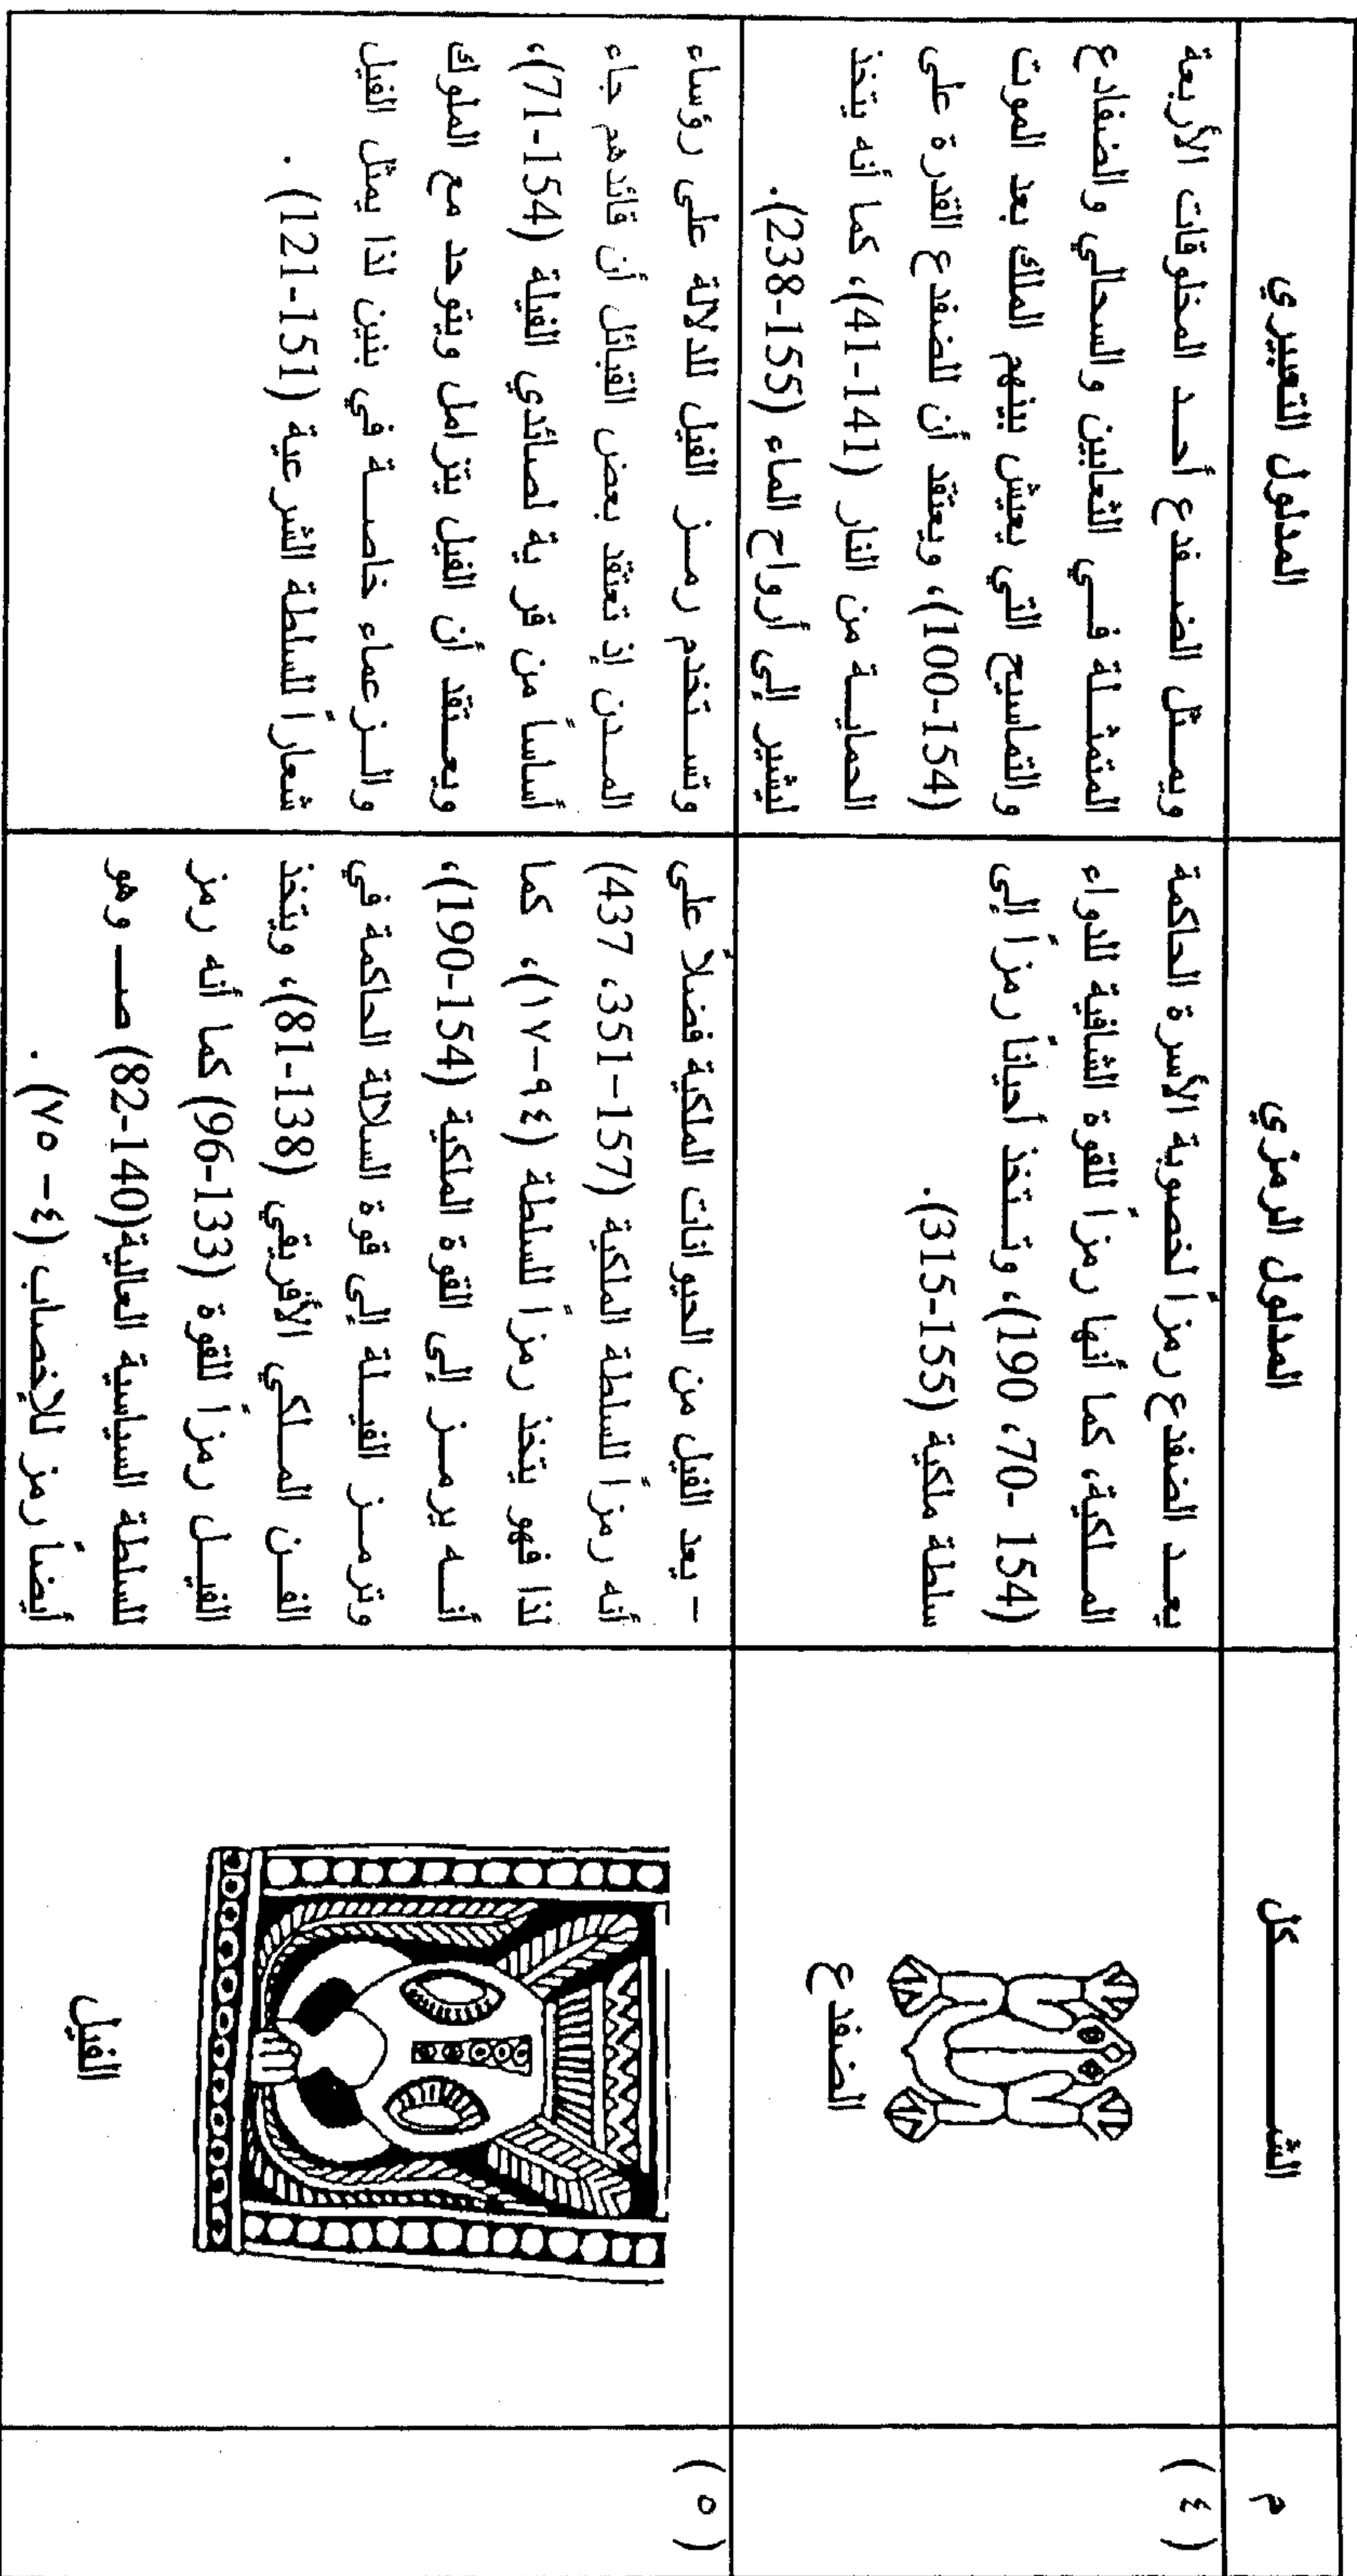 م
الشــــــــكل
المدلول الرمزي
المدلول التعبيري
( ٤ )
الضفدع
يعـد الضفدع رمزاً لخصوبة الأسرة الحاكمة
المـلكية، كما أنها رمزاً للقوة الشافية للدواء
(154 -70، 190)، وتـتخذ أحياناً رمزاً إلى
سلطة ملكية (155-315).
ويمـثل الضـفدع أحـد المخلوقات الأربعة
المتمثـلة فـي الثعابين والسحالي والضفادع
والتماسيح التي يعيش بينهم الملك بعد الموت
(154-100)، ويعتقد أن للضفدع القدرة على
الحمايـة من النار (141-41)، كما أنه يتخذ
ليشير إلى أرواح الماء (155-238).
( ٥ )
الفيل
– يعد الفيل من الحيوانات الملكية فضلاً على
أنه رمزاً للسلطة الملكية (157–351، 437)
لذا فهو يتخذ رمزاً للسلطة (٩٤–١٧)، كما
أنـه يرمـز إلى القوة الملكية (154-190)،
وترمـز الفيـلة إلى قوة السلالة الحاكمة في
الفـن المـلكي الأفريقي (138-81)، ويتخذ
الفيـل رمزاً للقوة (133-96) كما أنه رمز
للسلطة السياسية العالية(140-82) صـ وهو
أيضاً رمز للإخصاب (٤ – ٧٥) .
وتسـتخدم رمـز الفيل للدلالة على رؤساء
المـدن إذ تعتقد بعض القبائل أن قائدهم جاء
أساساً من قرية لصائدي الفيلة (154-71)،
ويعـتقد أن الفيل يتزامل ويتوحد مع الملوك
والـزعماء خاصـة في بنين لذا يمثل الفيل
شعاراً للسلطة الشرعية (151-121) .